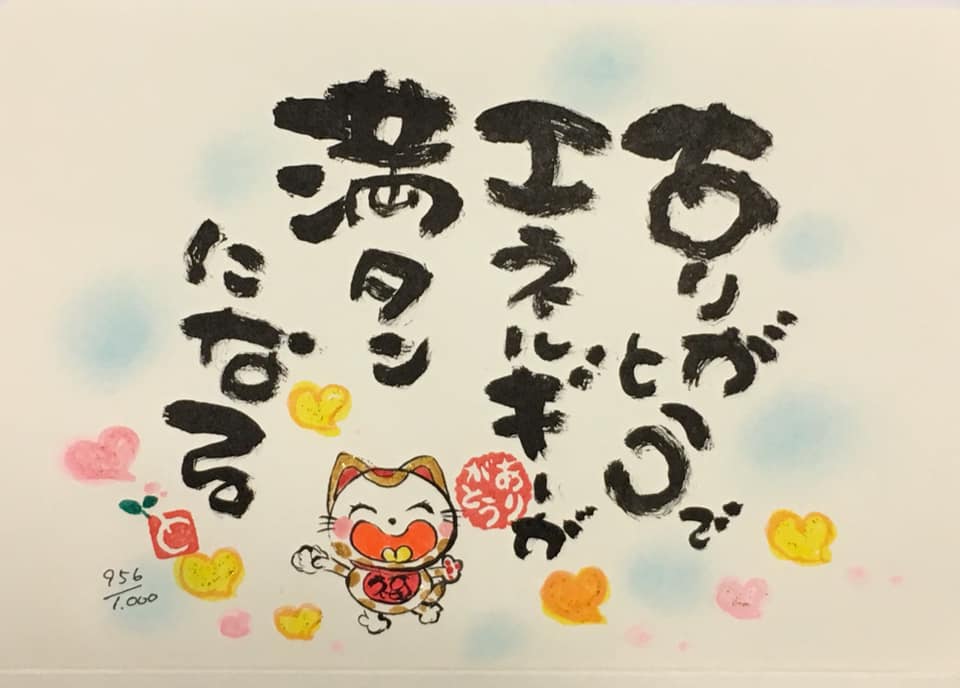 ありがとうで
エネルギーが
満タン
になる
ありがとう
福
と
956/1.000